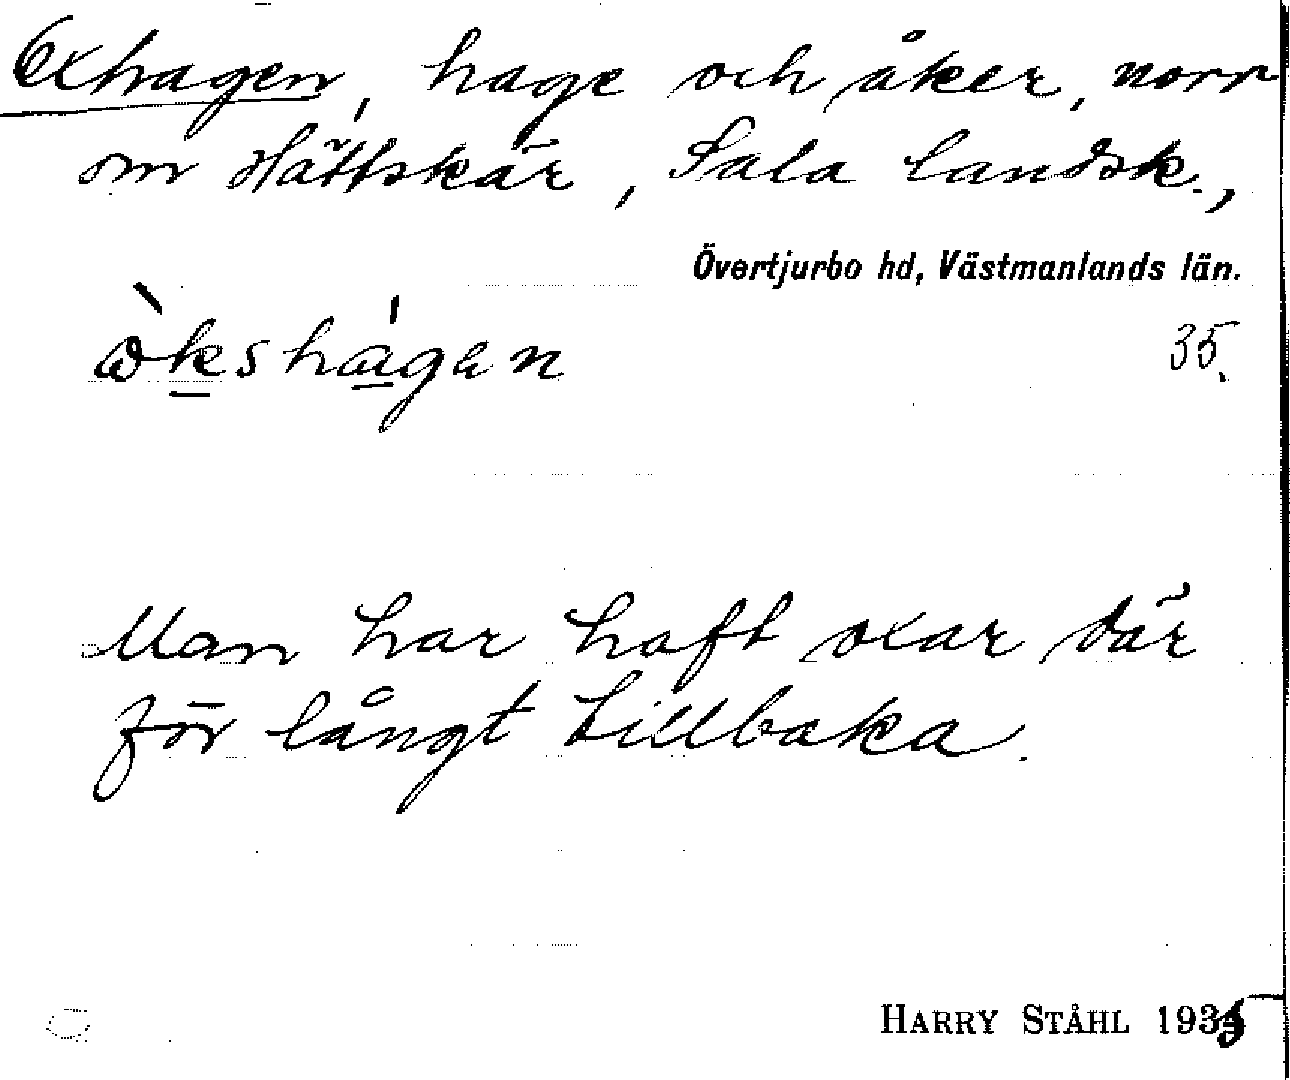 Oxhagen, hage och åker, norr
om Hättskär, Sala landsk.,
Övertjurbo hd, Västmanlands län.
ò̀kshágen
35.
Man har haft oxar där
för långt tillbaka.
HARRY STÅHL 1935